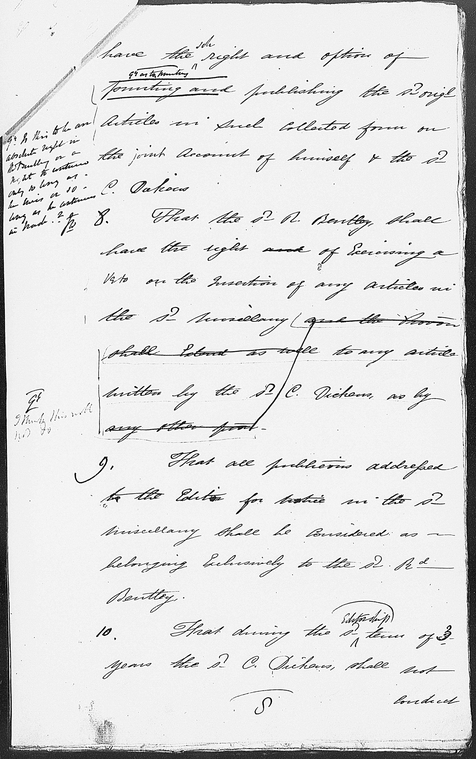 have the sole right and option of
qy as to printing
printing and publishing the sd origl
Articles in such Collected form on
the joint Account of himself & the sd
C. Dickens
Qy Is this to be an
absolute right in
Mr Bentley or a
right to continue
only so long as
he lives or so
long as he continues
in trade?
8. That the sd R. Bentley, shall
have the right and of Exercising a
Veto on the Insertion of any articles in
the sd Miscellany (and this Proviso
shall Extend as well to any article
written by the sd C. Dickens, as by
any other person.
Qy
I think this will
not do
9. That all publicons addressed
to the Editor for notice in the sd
Miscellany shall be Considered as
belonging Exclusively to the sd Rd
Bentley.
Editorship
10. That during the sd term of 3
years the sd C. Dickens, shall not
conduct
8